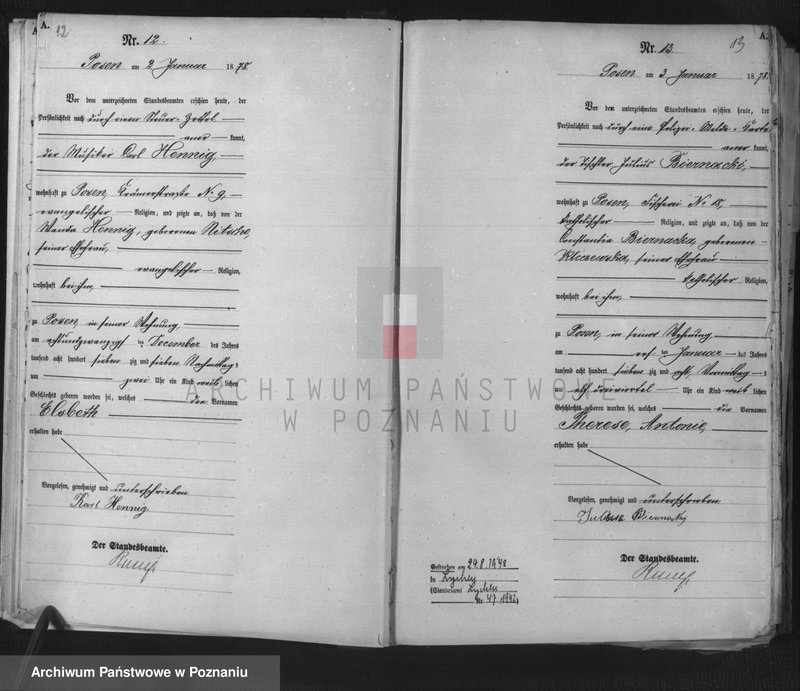 A.
12
Nr. 12.
Posen am 2 Januar 1878.
Vor dem unterzeichneten Standesbeamten erschien heute, der
Persönlichkeit nach durch einen Steuer-Zettel
aner kannt,
der Musiker Carl Hennig
wohnhaft zu Posen, Krämerstraße No 9,
evangelischer Religion, und zeigte an, daß von der
Wanda Hennig, geborenen Nitsche,
seiner Ehefrau,
evangelischer Religion,
wohnhaft bei ihm,
zu Posen, in seiner Wohnung
am achtundzwanzig ten December des Jahres
tausend acht hundert sieben zig und sieben Nachmittags
um zwei Uhr ein Kind weib lichen
Geschlechts geboren worden sei, welches den Vornamen
Elsbeth
erhalten habe
Vorgelesen, genehmigt und unterschrieben
Karl Hennig
Der Standesbeamte.
A.
13
Nr. 13
Posen am 3 Januar 1878.
Vor dem unterzeichneten Standesbeamten erschien heute, der
Persönlichkeit nach durch eine Polizei-Melde-Karte
aner kannt,
der Tischler Julius Biernacki,
wohnhaft zu Posen, Fischerei No 18,
katholischer Religion, und zeigte an, daß von der
Constantia Biernacka, geborenen
Kloczewska, seiner Ehefrau
katholischer Religion,
wohnhaft bei ihm,
zu Posen, in seiner Wohnung
am ersten Januar des Jahres
tausend acht hundert sieben zig und acht Vormittag
elf dreiviertel Uhr ein Kind weib lichen
Geschlechts geboren worden sei, welches die Vornamen
Therese, Antonie,
erhalten habe
Vorgelesen, genehmigt und unterschrieben
Der Standesbeamte.
Gestorben am 24.8.1942
in
(Standesamt
Nr. 47/1942)
ARCHIWUM PAŃSTWOWE
W POZNANIU
Archiwum Państwowe w Poznaniu